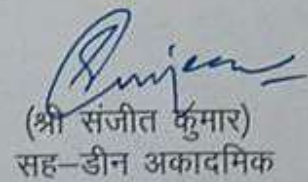 (श्री संजीत कुमार)
सह–डीन अकादमिक